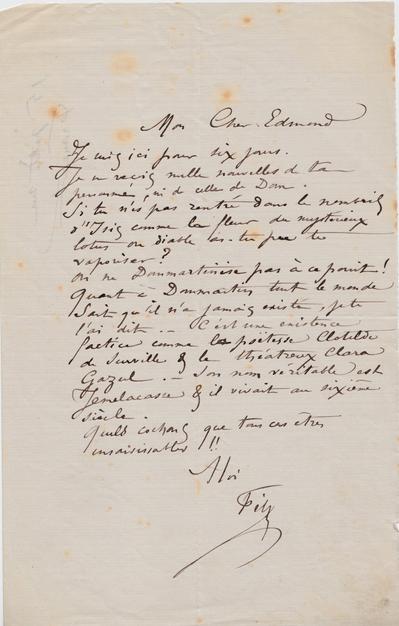 Mon Cher Edmond
Je suis ici pour six jours.
Je ne reçois nulle nouvelles de ta
personne, ni de celle de Dom.
Si tu n'es pas rentré dans le nombril
d'Isis comme la fleur du mystérieux
lotus où diable as-tu pu te
vaporiser?
On ne Dommartinise pas à ce point!
Quant à Dommartin tout le monde
sait qu'il n'a jamais existé, je te
l'ai dit. — C'est une existence
factice comme la poétesse Clotilde
de Surville & le théâtreux Clara
Gazul. — Son nom véritable est
& il vivait au sixième
siècle.
Quels cochons que tous ces êtres
insaisissables!!
Moi
Fély